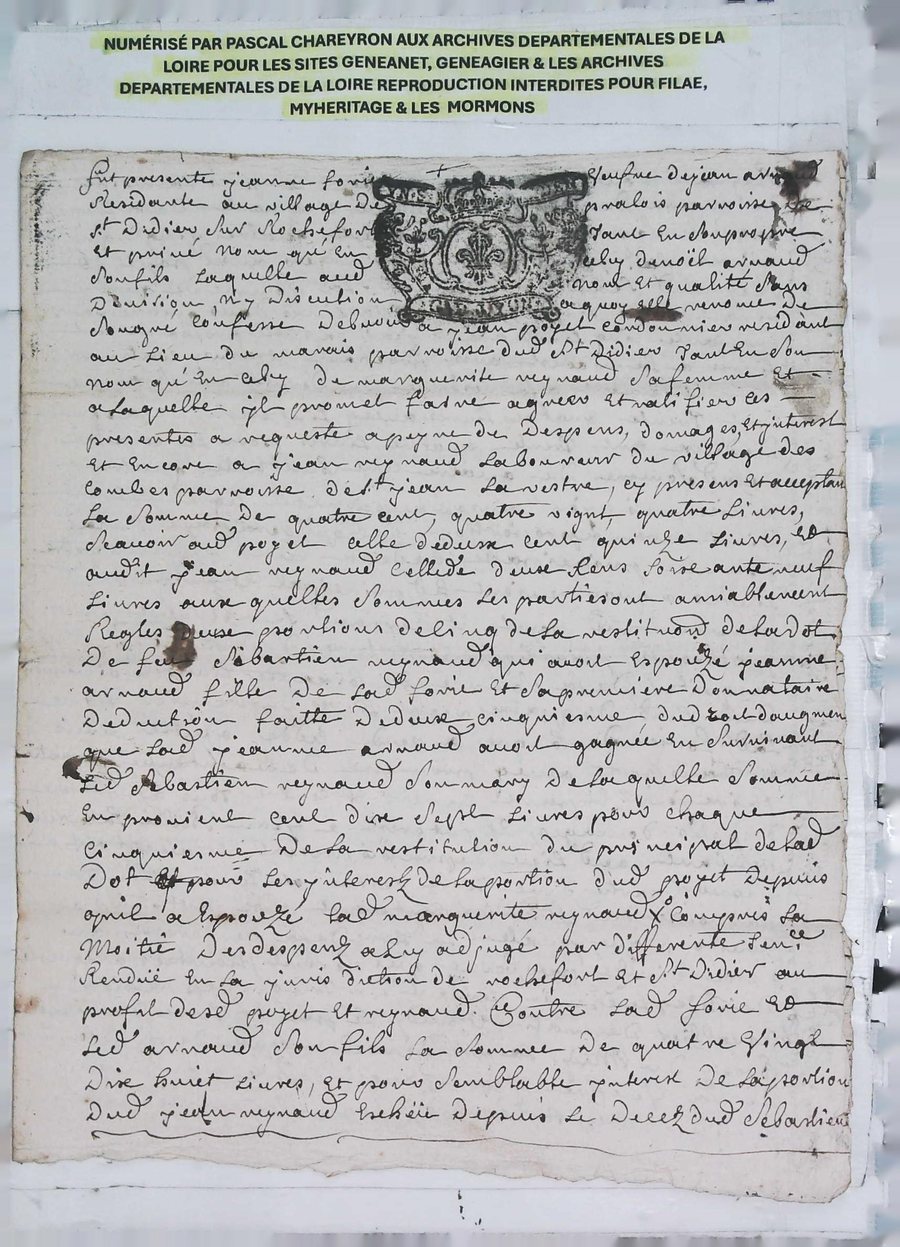 NUMÉRISÉ PAR PASCAL CHAREYRON AUX ARCHIVES DEPARTEMENTALES DE LA
LOIRE POUR LES SITES GENEANET, GENEAGIER & LES ARCHIVES
DEPARTEMENTALES DE LA LOIRE REPRODUCTION INTERDITES POUR FILAE,
MYHERITAGE & LES MORMONS
fut presente jeanne forie Veufve de jean arnaud
Residante au village De pralois parroisse de
st Didier sur Rochefort Tant En son propre
Et privé Nom qu'En celuy de noël arnaud
Son fils Laquelle aud nom Et qualité Sans
Division Ny Discution a quoy elle renonce De
Son gré Confesse Debvoir a jean poyet cordonnier residant
au Lieu du marais parroisse dud St Didier Tant En Son
nom qu'En celuy de marguerite reynaud Sa femme Et
a Laquelle jl promet faire agreer Et ratiffier ces
presentes a requeste a peyne de Despens, domages, Et jnterest
Et Encore a jean reynaud Laboureur du village des
Combes parroisse de St jean La vestre, cy presens Et acceptan
La Somme De quatre cent, quatre vignt, quatre Livres,
Scavoir aud poyet celle de deux cent quinze Livres, Et
audit jean reynaud Celle de deux sens Soixante neuf
Livres aux quelles Sommes Les parties ont amiablement
Regles deux portions de Cinq de La restitution de La dot
De feu Sébastien reynaud qui avoit Espouzé jeanne
arnaud fille De Lad forie Et Sa premiere Donnataire
Deduction faitte De deux cinquiesme dud droit daugmen
que Lad jeanne arnaud avoit gagnée En Survivant
Led Sébastien reynaud Son mary De La quelle Somme
En provient cent dix Sept Livres pour chaque
Cinquiesme De La restitution du principal de Lad
Dot pour Les jnterestz de La portion dud poyet Depuis
qu'il a Espouzé Lad marguerite reynaud Compris La
Moitié Des despenz a Luy adjugé par differente Sence
Renduë En La juris diction de rochefort Et St Didier au
profit desd poyet Et reynaud Contre Lad forie Et
Led arnaud Son fils La Somme De quatre Vingt
Dix huict Livres, Et pour Semblable jnterest De La portion
Dud jean reynaud Escheüe Depuis Le Decez dud Sébastien